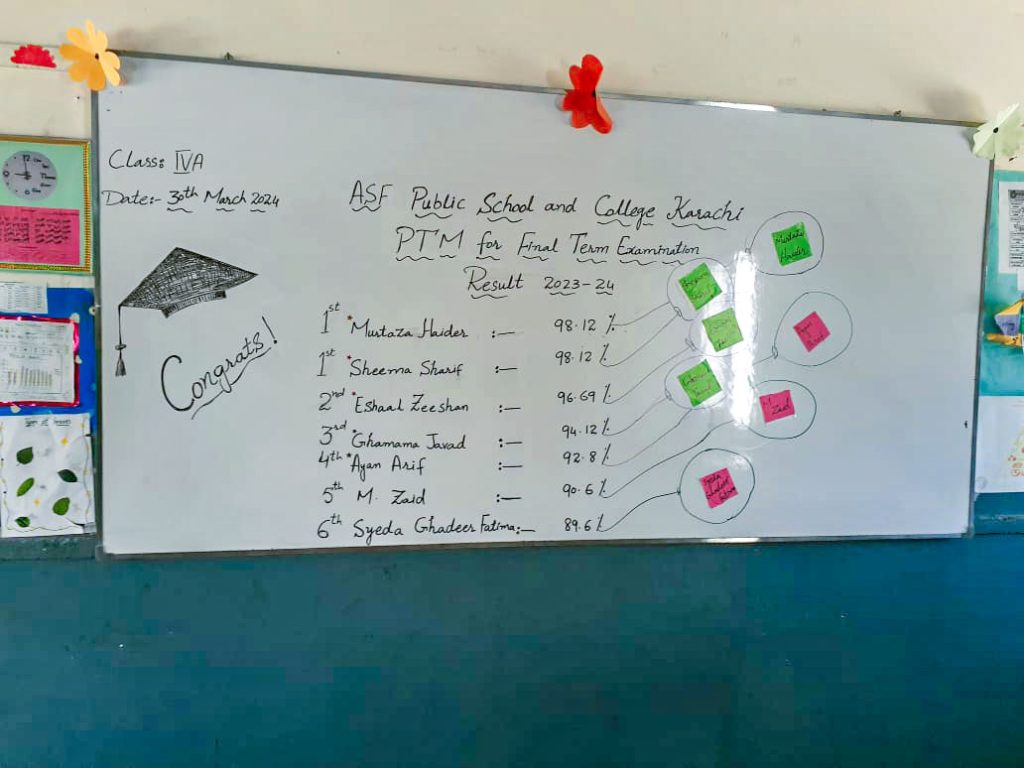 Class: IVA
Date:- 30th March 2024
ASF Public School and College Karachi
PTM for Final Term Examination
Result 2023-24
Congrats!
1st *Murtaza Haider :— 98.12 %
1st *Sheema Sharif :— 98.12 %
2nd *Eshaal Zeeshan :— 96.69 %
3rd *Ghamama Javad :— 94.12 %
4th *Ayan Arif :— 92.8 %
5th M. Zaid :— 90.6 %
6th Syeda Ghadeer Fatima:— 89.6 %
Murtaza
Haider
M.
Zaid
Syeda
Ghadeer
Fatima